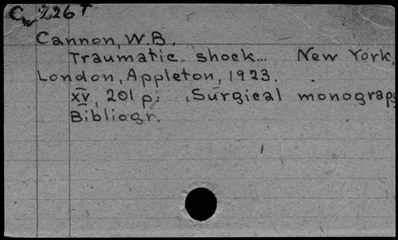 C 226 T
Cannon, W.B.
Traumatic shock... New York,
London, Appleton, 1923.
xv, 201 p. Surgical monograp
Bibliogr.